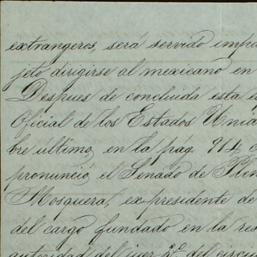 extrangeros, será servido impu
jeto dirigirse al mexicano en
Despues de concluida esta
Oficial de los Estados Unid
bre ultimo, en la pag. 914
pronunció el Senado de Plen
Mosquera, ex-presidente de
del cargo fundado en la res
autoridad del juez 2º del circu